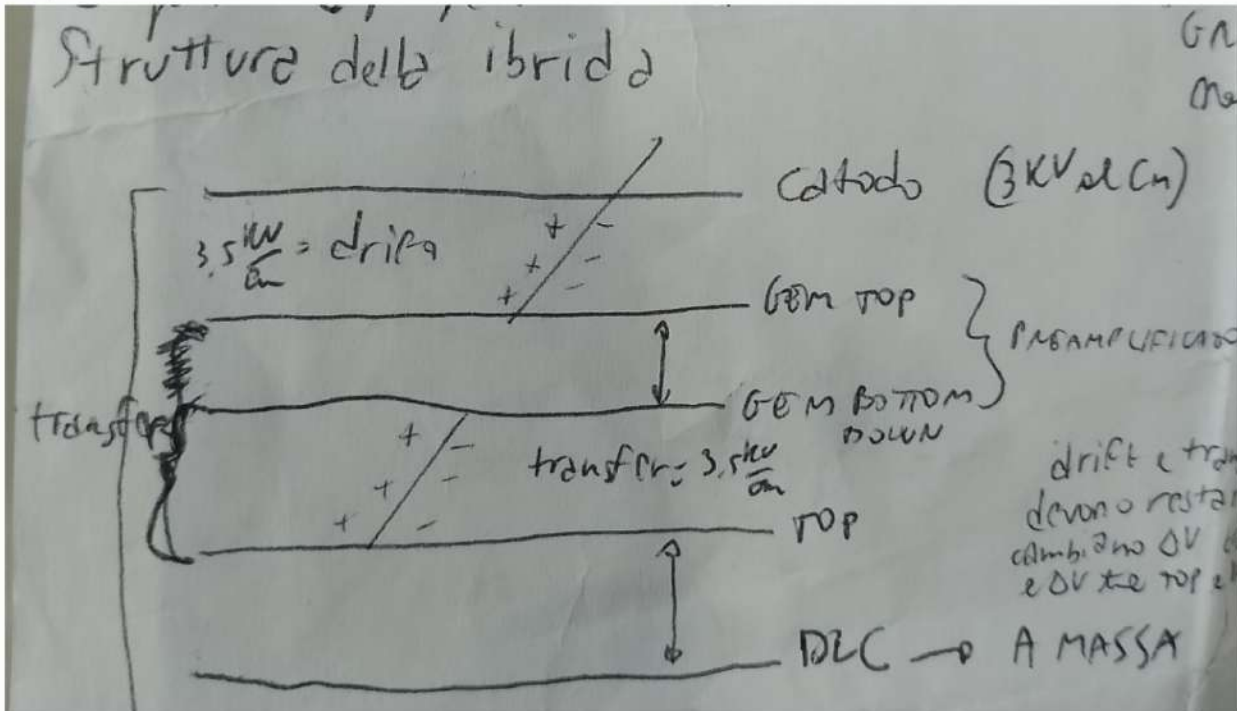 Struttura della ibrida
Catodo (3 KV al Cm)
3,5 KV/cm = drift
GEM TOP
PREAMPLIFICATO
GEM BOTTOM
DOWN
transfer
transfer = 3,5 KV/cm
TOP
drift e tran
devono resta
cambiano ΔV
e ΔV tra TOP e
DLC → A MASSA